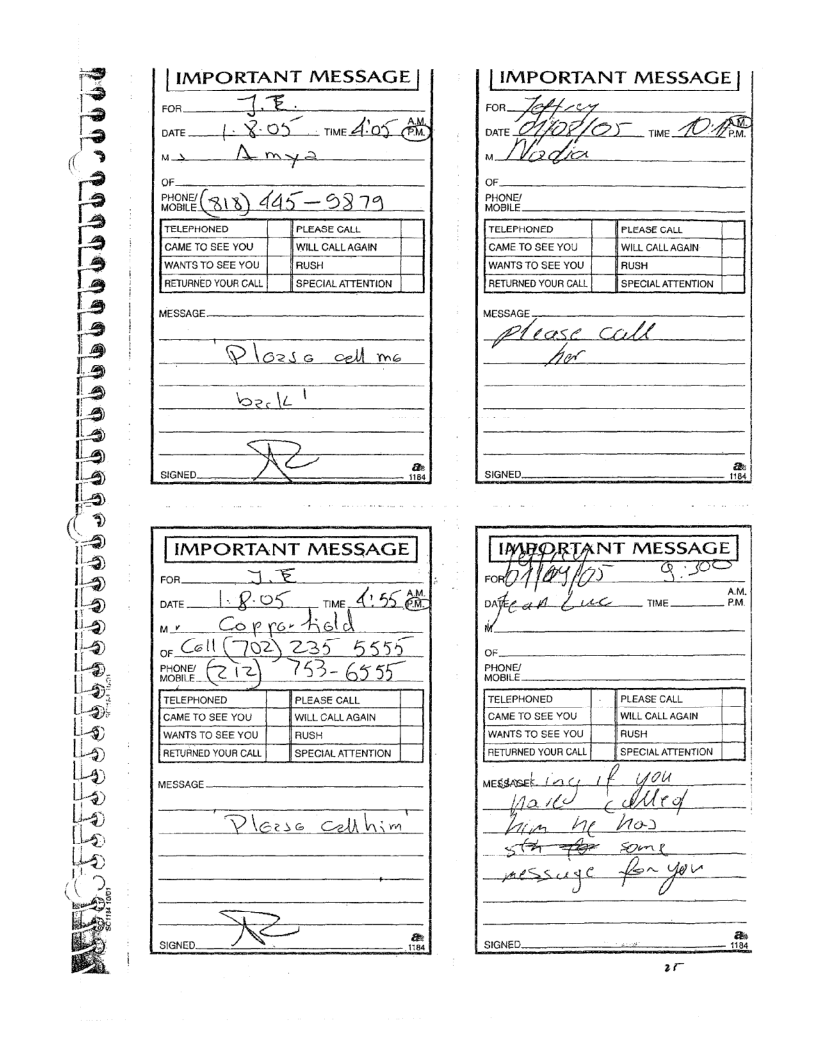 IMPORTANT MESSAGE
FOR J.E.
DATE 1.8.05 TIME 4:05 A.M. P.M.
M Amya
OF
PHONE/ MOBILE (818) 445-9879
TELEPHONED PLEASE CALL
CAME TO SEE YOU WILL CALL AGAIN
WANTS TO SEE YOU RUSH
RETURNED YOUR CALL SPECIAL ATTENTION
MESSAGE
Please call me
back!
SIGNED
1184
IMPORTANT MESSAGE
FOR Jeffrey
DATE 01/08/05 TIME A.M. P.M.
M Nadia
OF
PHONE/
MOBILE
TELEPHONED PLEASE CALL
CAME TO SEE YOU WILL CALL AGAIN
WANTS TO SEE YOU RUSH
RETURNED YOUR CALL SPECIAL ATTENTION
MESSAGE
please call
her
SIGNED
1184
IMPORTANT MESSAGE
FOR J.E
DATE 1.8.05 TIME 4:55 A.M. P.M.
M r Copperfield
OF Cell (702) 235 5555
PHONE/ MOBILE (212) 753-6555
TELEPHONED PLEASE CALL
CAME TO SEE YOU WILL CALL AGAIN
WANTS TO SEE YOU RUSH
RETURNED YOUR CALL SPECIAL ATTENTION
MESSAGE
Please call him
SIGNED
1184
IMPORTANT MESSAGE
Jeffrey
FOR 01/09/05
DATE Jean Luc TIME A.M. P.M.
M
OF
PHONE/
MOBILE
TELEPHONED PLEASE CALL
CAME TO SEE YOU WILL CALL AGAIN
WANTS TO SEE YOU RUSH
RETURNED YOUR CALL SPECIAL ATTENTION
MESSAGE if you
have called
him he has
sth for some
message for you
SIGNED
1184
25
SC1184 10/01